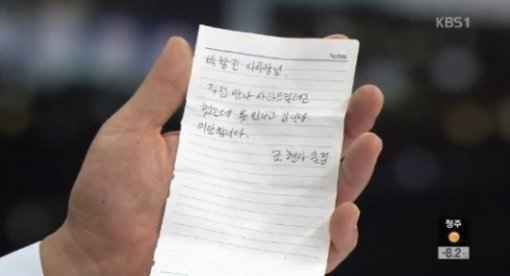 KBS1
Notes
박창진 사무장님.
직접 만나 사과드릴려고
했는데 못 만나고 갑니다.
미안합니다.
조현아 올림
청주
-8.2